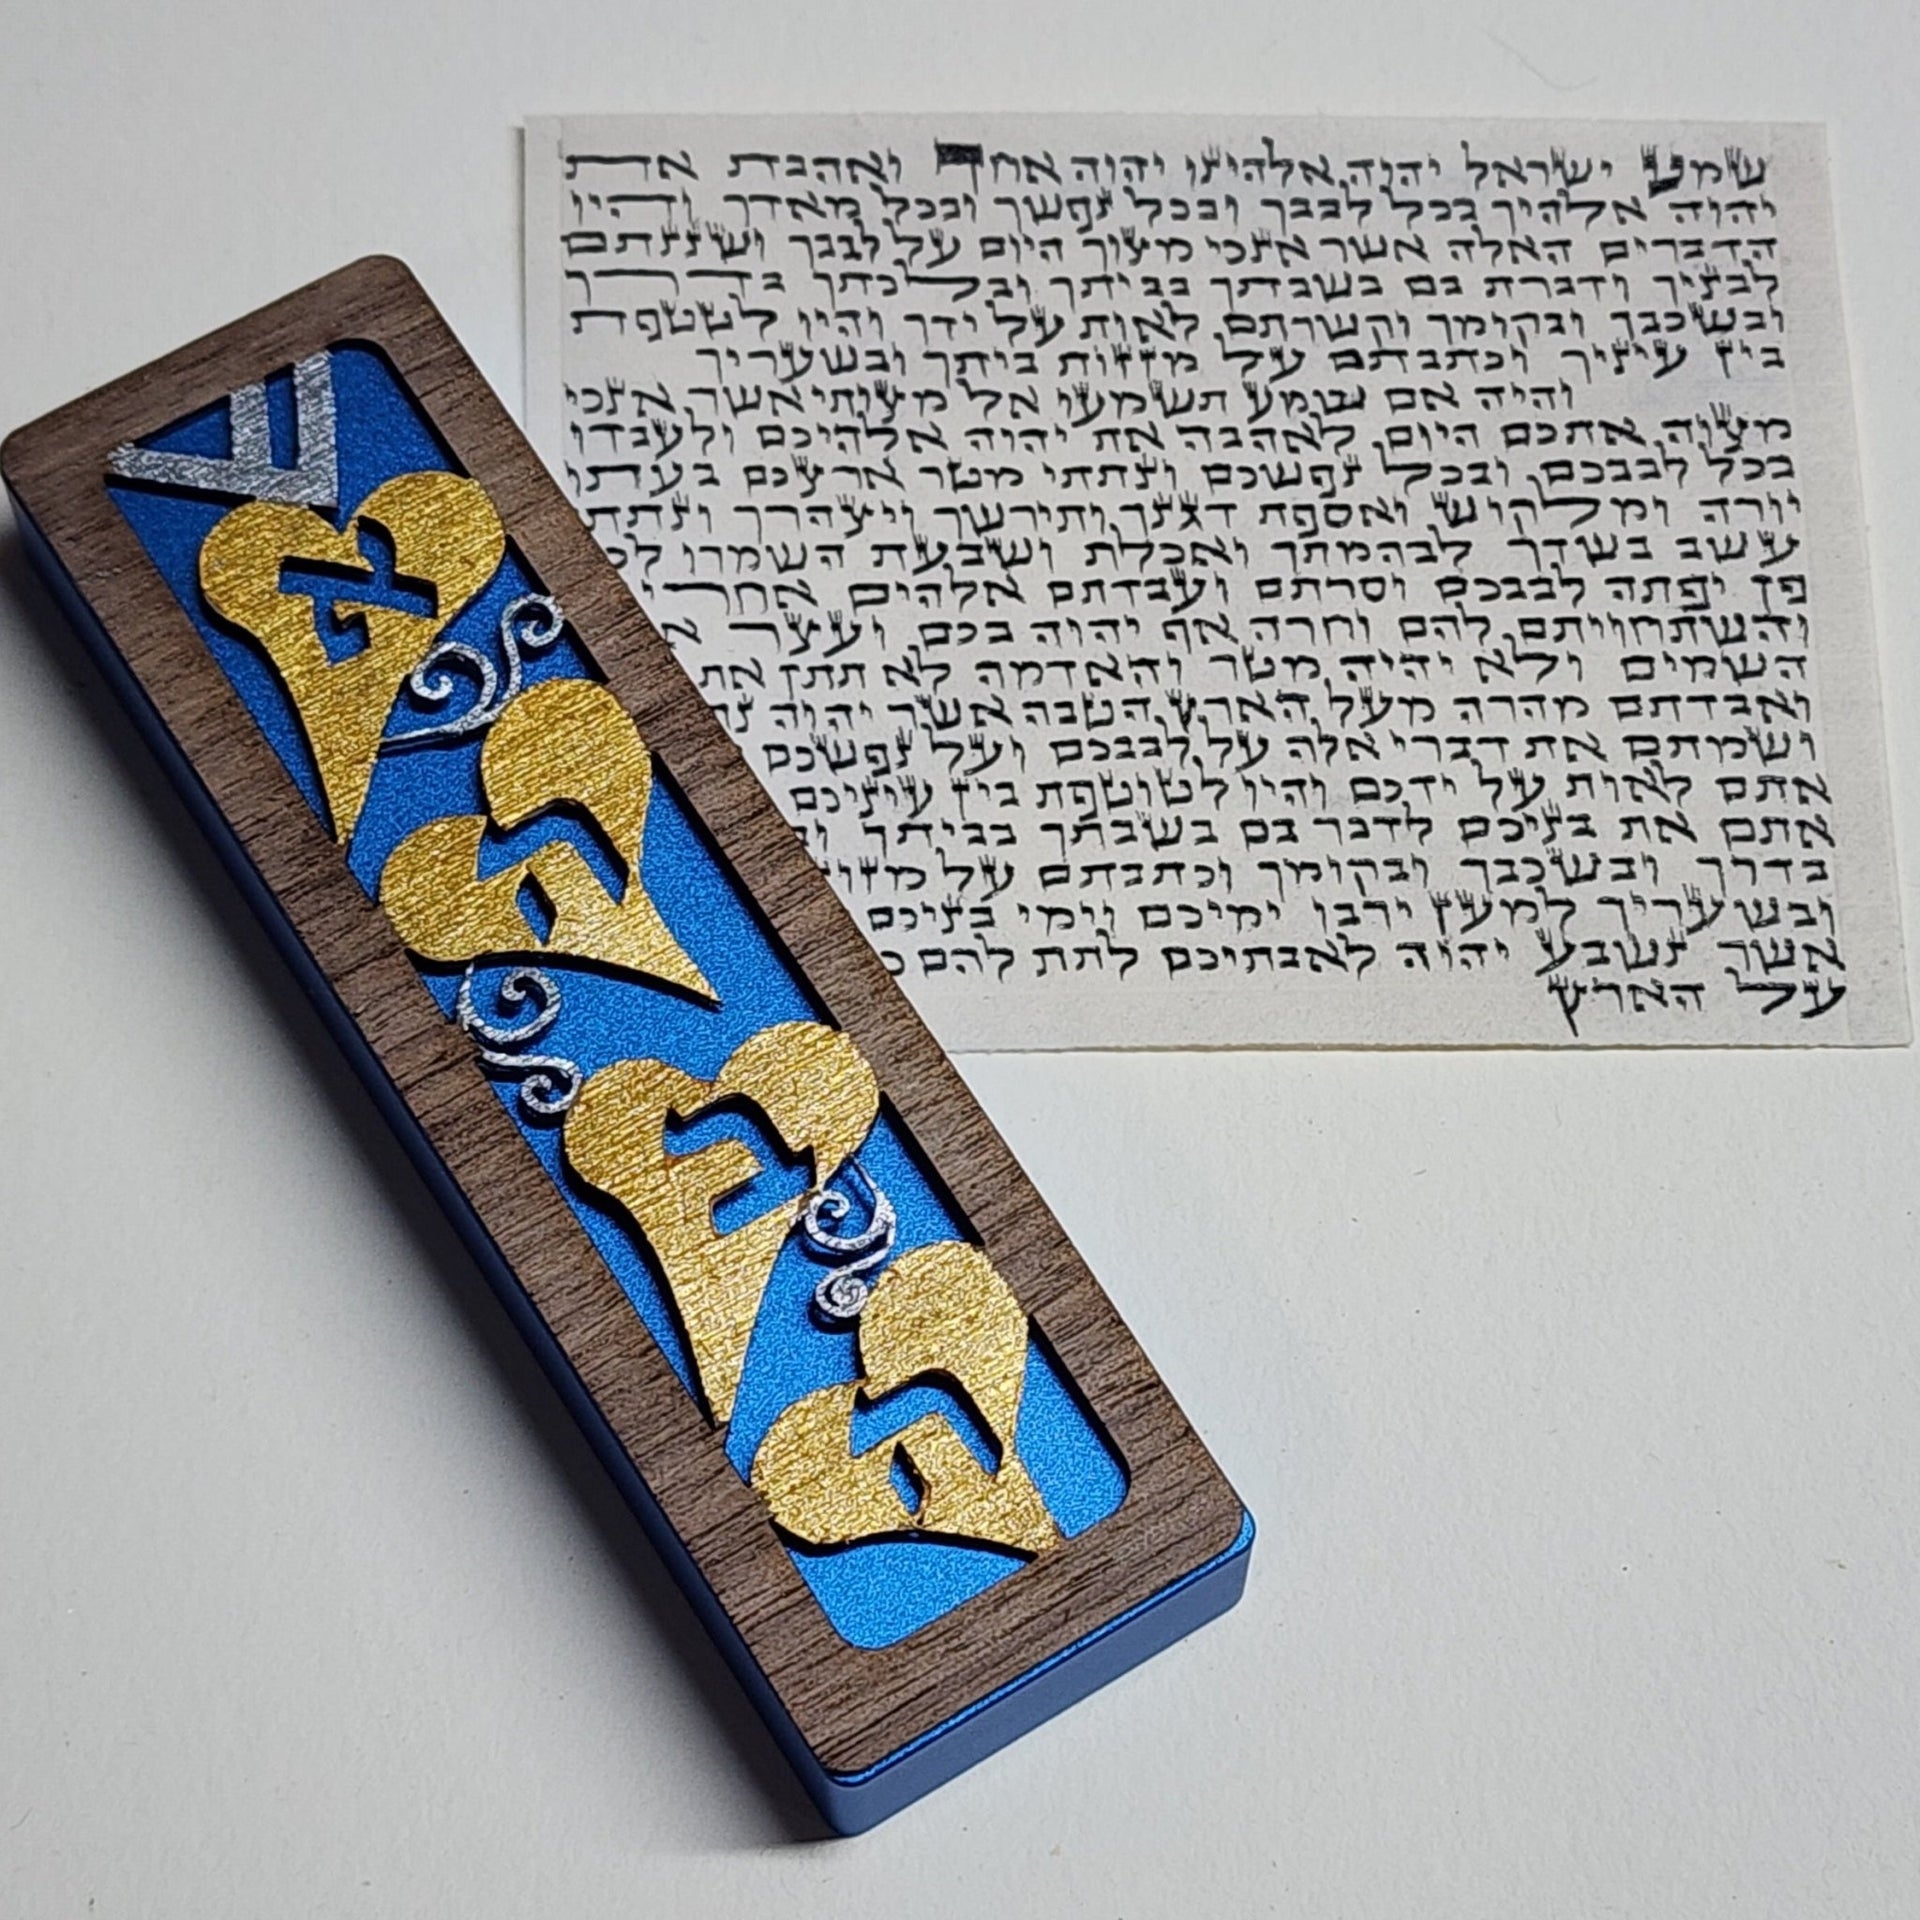 ש
א
ה
ב
ה
שמע ישראל יהוה אלהינו יהוה אחד ואהבת את
יהוה אלהיך בכל לבבך ובכל נפשך ובכל מאדך והיו
הדברים האלה אשר אנכי מצוך היום על לבבך ושננתם
לבניך ודברת בם בשבתך בביתך ובלכתך בדרך
ובשכבך ובקומך וקשרתם לאות על ידך והיו לטטפת
בין עיניך וכתבתם על מזזות ביתך ובשעריך
והיה אם שמע תשמעו אל מצותי אשר אנכי
מצוה אתכם היום לאהבה את יהוה אלהיכם ולעבדו
בכל לבבכם ובכל נפשכם ונתתי מטר ארצכם בעתו
יורה ומלקוש ואספת דגנך ותירשך ויצהרך ונתת
עשב בשדך לבהמתך ואכלת ושבעת השמרו
פן יפתה לבבכם וסרתם ועבדתם אלהים אחרי
והשתחויתם להם וחרה אף יהוה בכם ועצר
השמים ולא יהיה מטר והאדמה לא תתן את
ואבדתם מהרה מעל הארץ הטבה אשר יהוה
ושמתם את דברי אלה על לבבכם ועל נפשכם
אתם לאות על ידכם והיו לטוטפת בין עיניכם
אתם את בניכם לדבר בם בשבתך בביתך
בדרך ובשכבך ובקומך וכתבתם על
ובשעריך למען ירבו ימיכם וימי בניכם
אשר נשבע יהוה לאבתיכם לתת להם
על הארץ